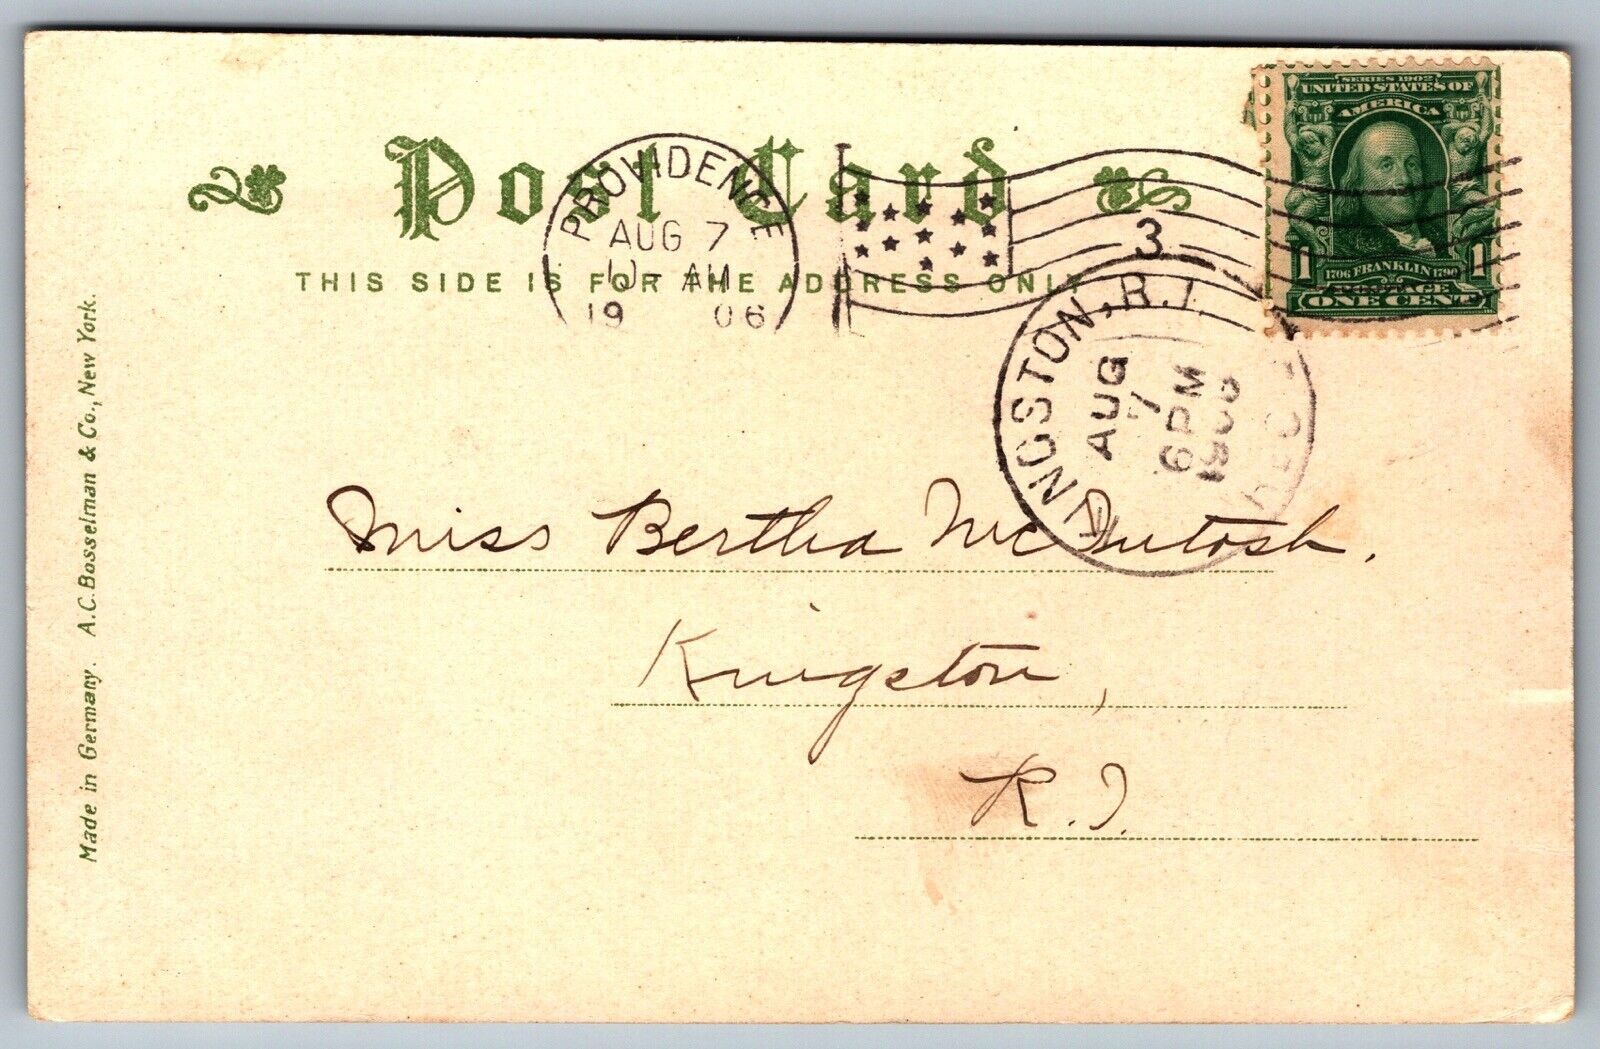 Post Card
THIS SIDE IS FOR THE ADDRESS ONLY
PROVIDENCE
AUG 7
10 - AM
19 06
3
SERIES 1902
UNITED STATES OF
AMERICA
1 1
1706 FRANKLIN 1790
POSTAGE
ONE CENT
KINGSTON, R.I.
AUG
7
6 PM
1906
REC'D
Miss Bertha McIntosh.
Kingston,
R.I.
Made in Germany. A.C. Bosselman & Co., New York.